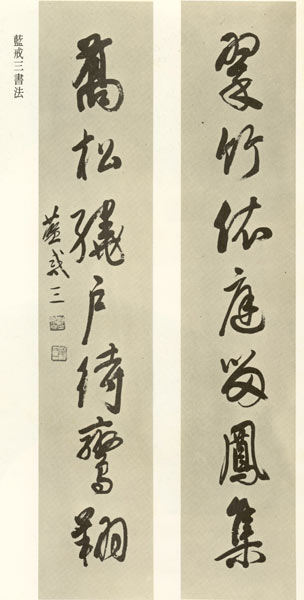 藍戒三書法
翠竹依庭留鳳集
喬松繞戶待鸞翔
藍戒三